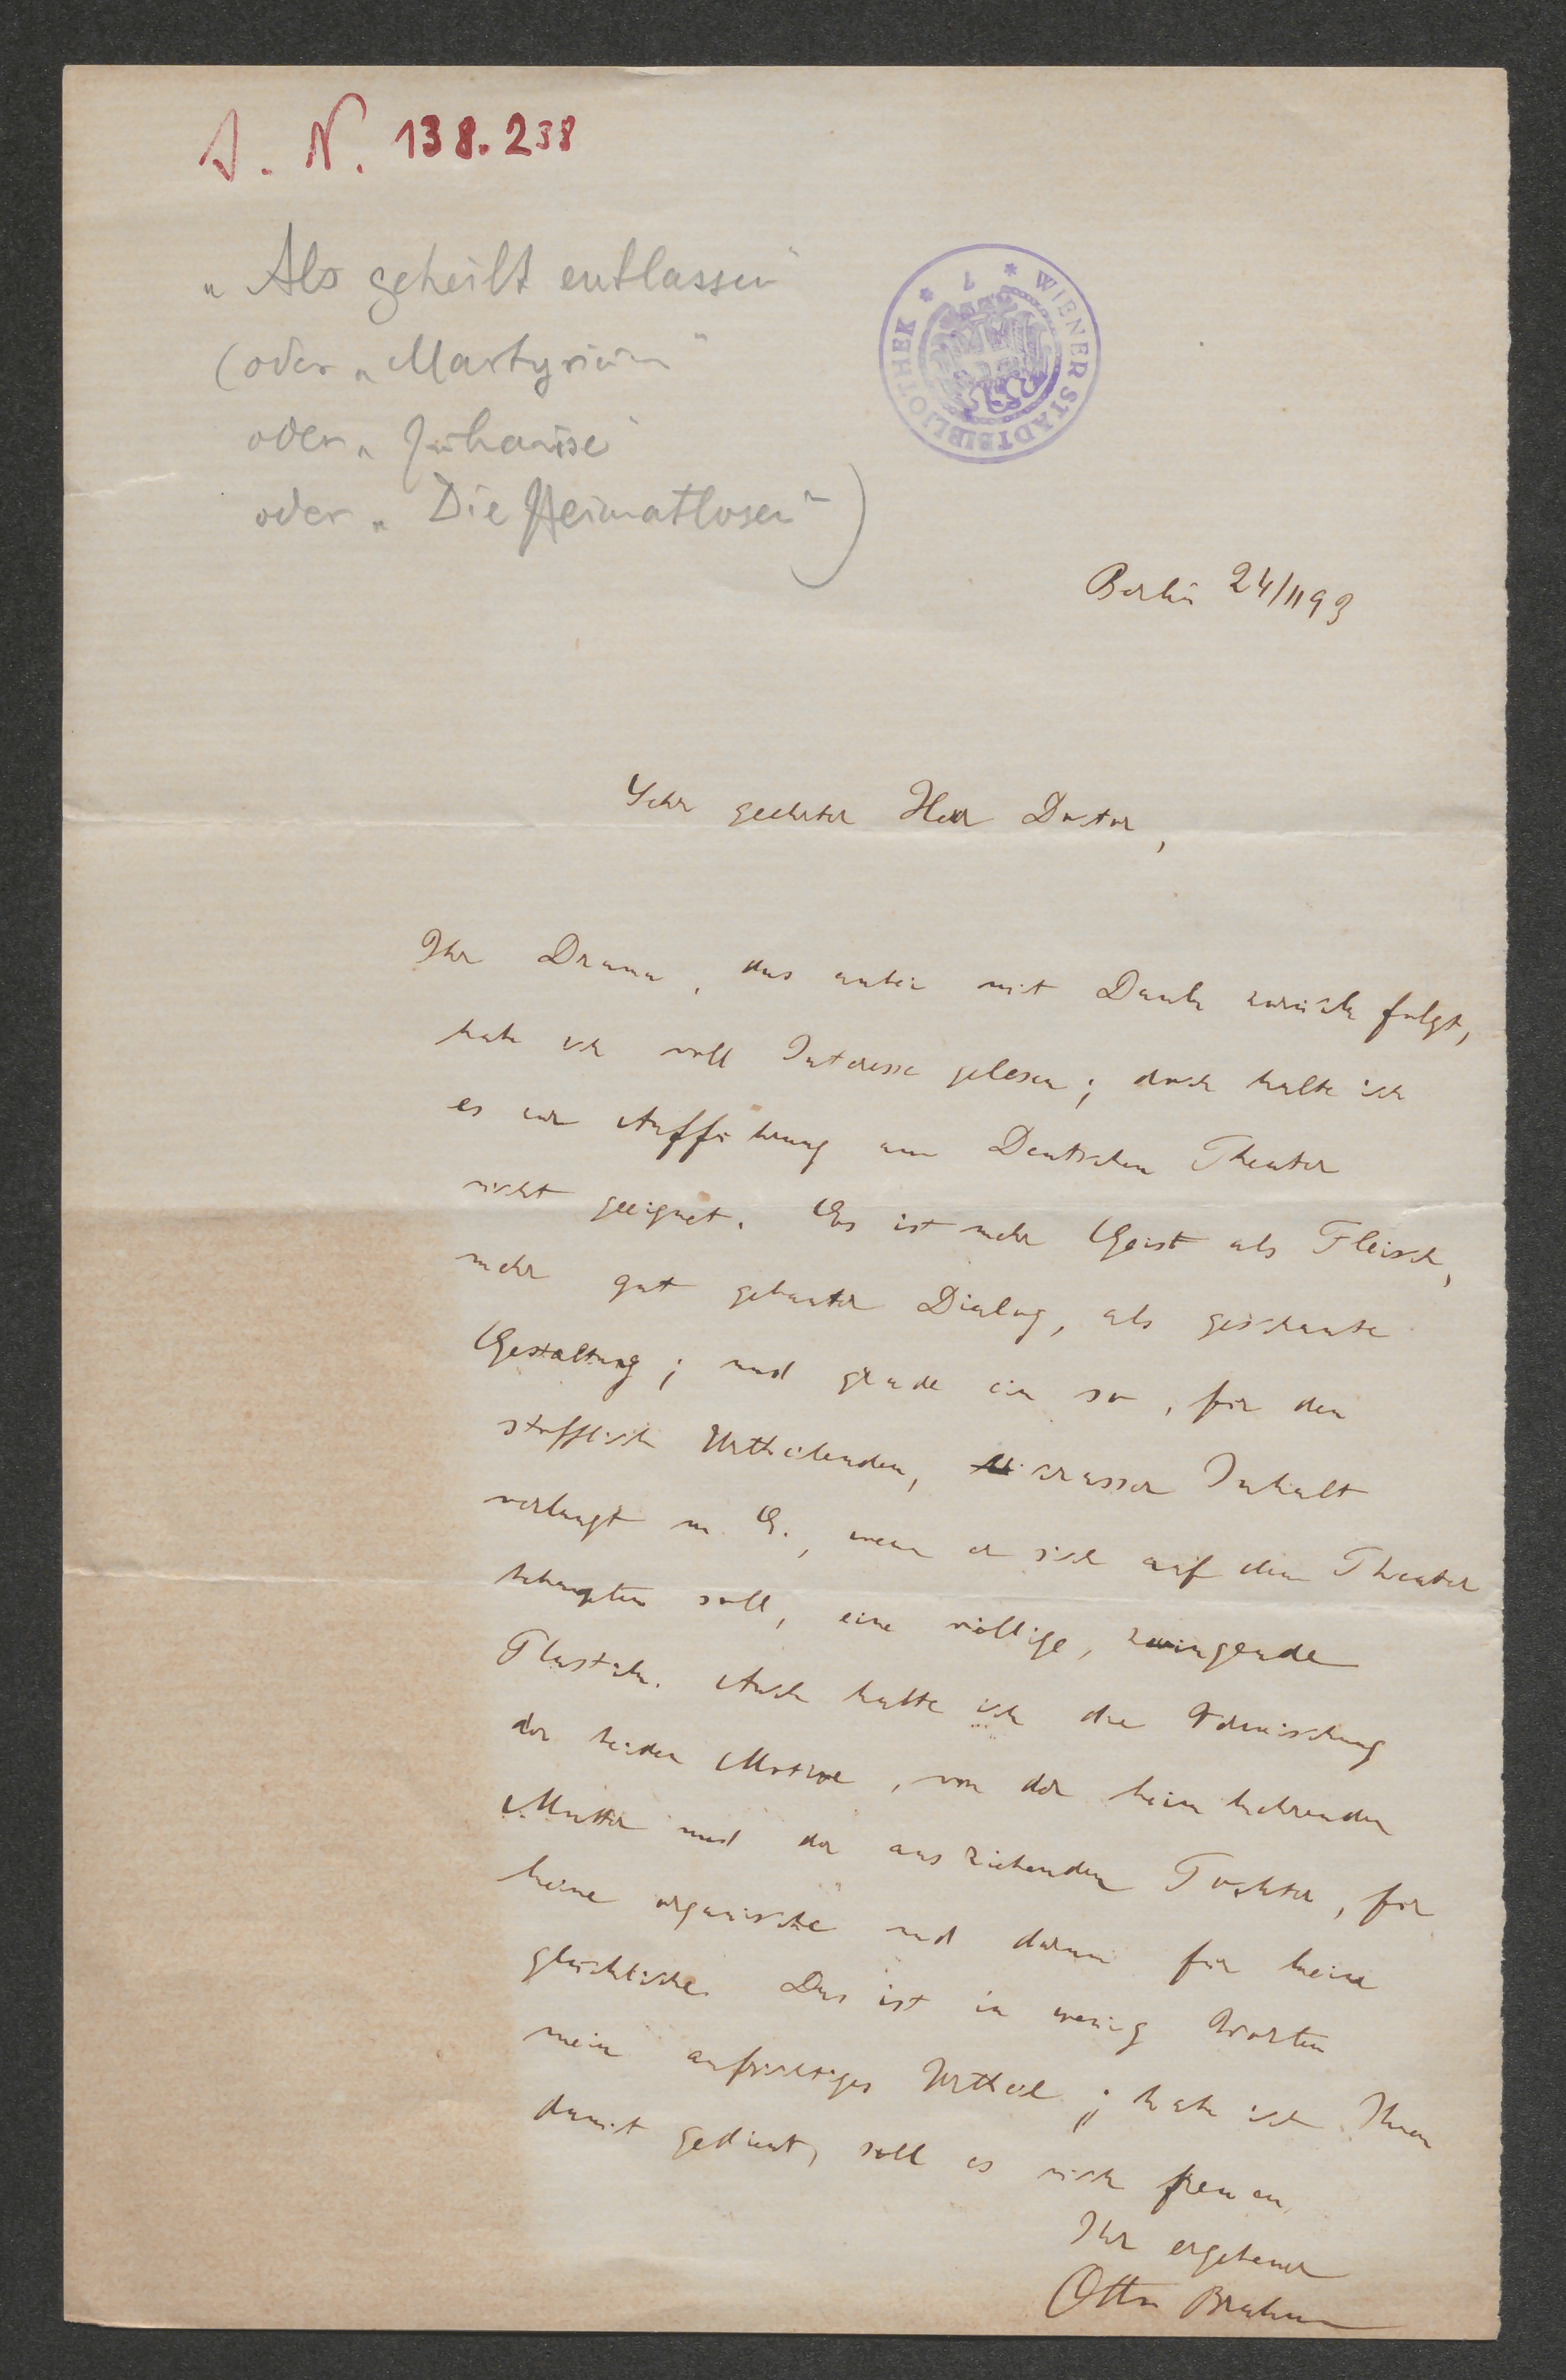 J. N. 138.238
„Als geheilt entlassen“
(oder „Martyrium“
oder „Zuhause“
oder „Die Heimatlosen“)
* WIENER STADTBIBLIOTHEK *
Berlin 24/11 93
Sehr geehrter Herr Doctor,
Ihr Drama, das anbei mit Dank zurück folgt,
habe ich voll Interesse gelesen; doch halte ich
es zur Aufführung am Deutschen Theater
nicht geeignet. Es ist mehr Geist als Fleisch,
mehr gut gebauter Dialog, als geschaute
Gestaltung; und grade ein so, für den
stofflich Urtheilenden, crasser Inhalt
verlangt m. E., wenn er sich auf dem Theater
behaupten soll, eine völlige, zwingende
Plastik. Auch halte ich die Vermischung
der beiden Motive, von der heim kehrenden
Mutter und der aus ziehenden Tochter, für
keine organische und darum für keine
glückliche. Das ist in wenig Worten
mein aufrichtiges Urtheil; habe ich Ihnen
damit gedient, soll es mich freuen.
Ihr ergebener
Otto Brahm